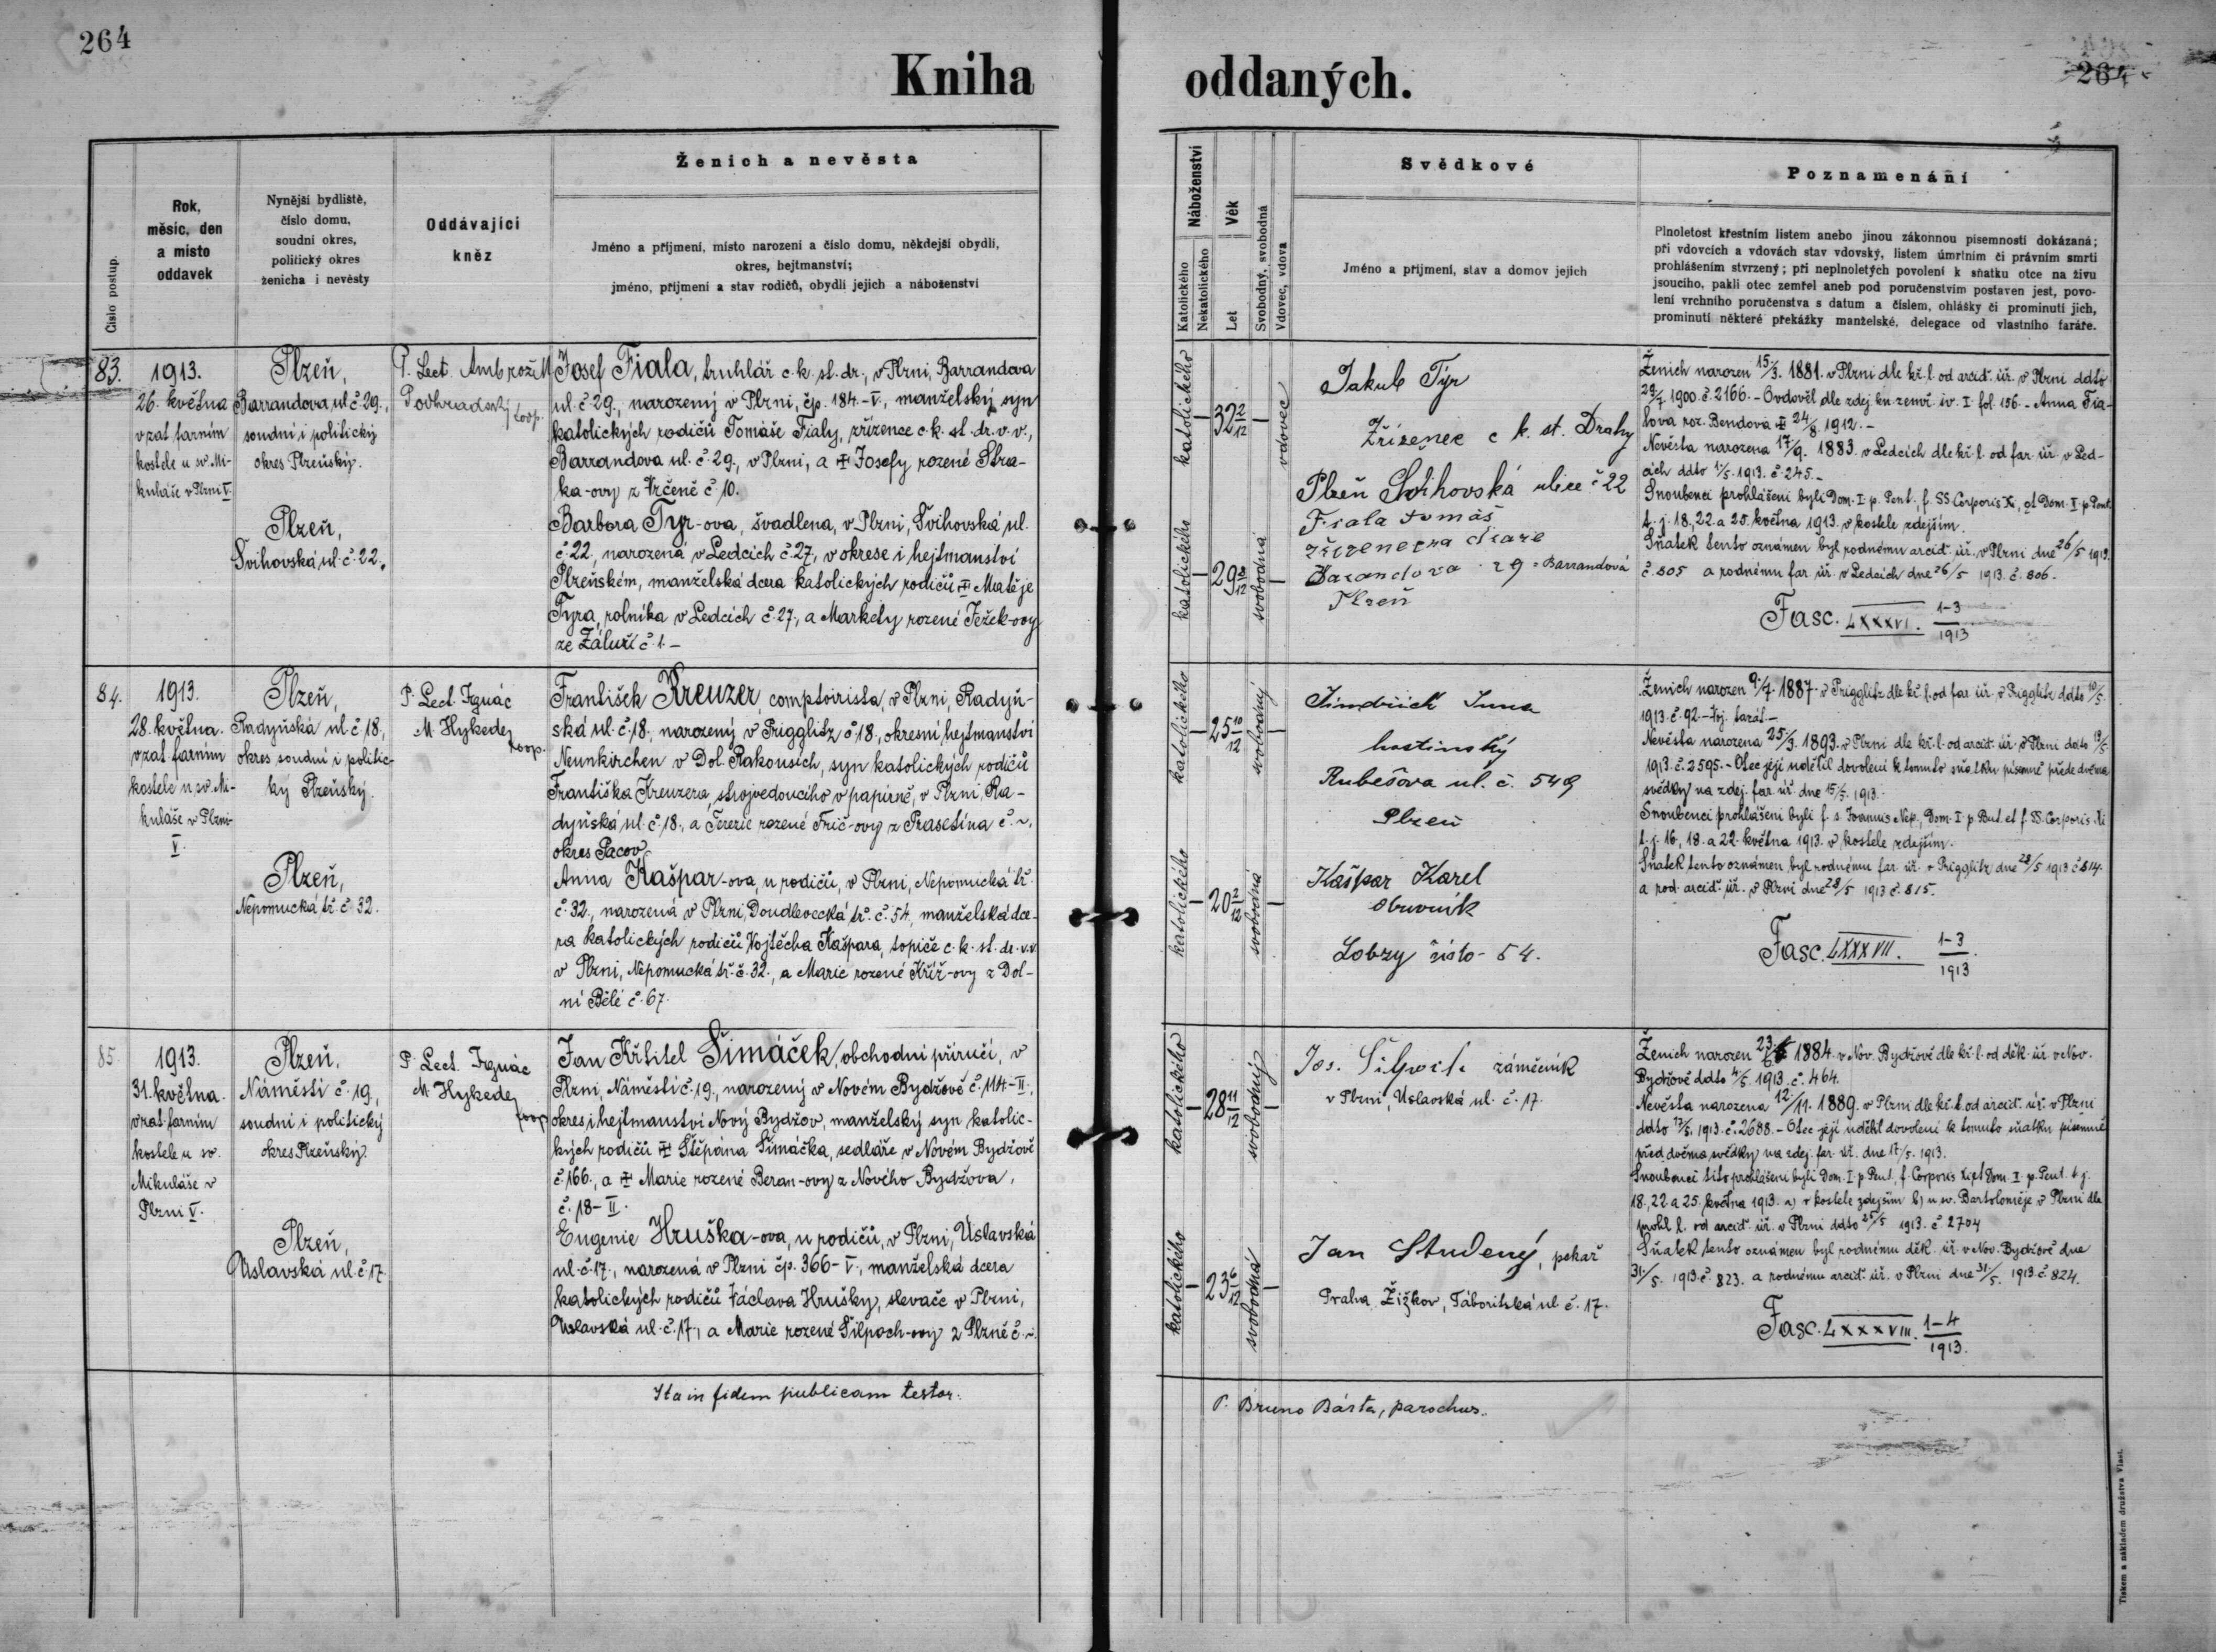 264
Kniha
oddaných.
264
Číslo postup.
Rok,
měsíc, den
a místo
oddavek
Nynější bydliště,
číslo domu,
soudní okres,
politický okres
ženicha i nevěsty
Oddávající
kněz
Ženich a nevěsta
Jméno a příjmení, místo narození a číslo domu, někdejší obydlí,
okres, hejtmanství;
jméno, příjmení a stav rodičů, obydlí jejich a náboženství
Náboženství
Katolického
Nekatolického
Věk
Let
Svobodný, svobodná
Vdovec, vdova
Svědkové
Jméno a příjmení, stav a domov jejich
Poznamenání
Plnoletost křestním listem anebo jinou zákonnou písemností dokázaná;
při vdovcích a vdovách stav vdovský, listem úmrtním či právním smrti
prohlášením stvrzený; při neplnoletých povolení k sňatku otce na živu
jsoucího, pakli otec zemřel aneb pod poručenstvím postaven jest, povo-
lení vrchního poručenstva s datum a číslem, ohlášky či prominutí jich,
prominutí některé překážky manželské, delegace od vlastního faráře.
83.
1913.
26. května
v zat. farním
kostele u sv. Mi-
kuláše v Plzni V.
Plzeň,
Barrandova ul. č. 29.,
soudní i politický
okres Plzeňský.
Plzeň,
Švihovská ul. č. 22.
P. Lect. Ambrož M.
Podhradský
koop.
Josef Fiala, truhlář c. k. st. dr., v Plzni, Barrandova
ul. č. 29., narozený v Plzni, čp. 184.-V., manželský syn
katolických rodičů Tomáše Fialy, zřízence c. k. st. dr. v. v.,
Barrandova ul. č. 29., v Plzni, a ✝ Josefy rozené Stra-
ka-ovy z Vrčeně č. 10.
Barbora Tyr-ova, švadlena, v Plzni, Švihovská ul.
č. 22., narozená v Ledcích č. 27., v okrese i hejtmanství
Plzeňském, manželská dcera katolických rodičů ✝ Matěje
Tyra, rolníka v Ledcích č. 27., a Markéty rozené Ježek-ovy
ze Záluží č. 1.-
katolického
32 2/12
vdovec
katolického
29 8/12
svobodná
Jakub Týr
Zřízenec c k. st. Drahy
Plzeň Svihovská ulice č 22
Fiala tomáš
zřízenec na draze
Barandova 29 = Barrandová
Plzeň
Ženich narozen 15/3. 1881. v Plzni dle kř. l. od arciď. úř. v Plzni ddto
29/7 1900. č. 2166. - Ovdověl dle zdej. kn. zemř. iv. I. fol. 156. - Anna Fia-
lova roz. Bendova ✝ 24/8. 1912. -
Nevěsta narozena 17/9. 1883. v Ledcích dle kř. l. od far. úř. v Led-
cích ddto 1/5. 1913. č. 245. -
Snoubenci prohlášeni byli Dom. I. p. Pent., f. SS. Corporis Xi, et Dom. II. p. Pent.
t. j. 18., 22. a 25. května 1913. v kostele zdejším.
Sňatek tento oznámen byl rodnému arciď. úř. v Plzni dne 26/5 1913.
č. 805 a rodnému far. úř. v Ledcích dne 26/5 1913. č. 806.
Fasc. LXXXVI. 1-3/1913
84.
1913.
28. května.
v zat. farním
kostele u sv. Mi-
kuláše v Plzni
V.
Plzeň,
Radyňská ul. č. 18.,
okres soudní i politic-
ký Plzeňský.
Plzeň,
Nepomucká tř. č. 32.
P. Lect. Ignác
M. Hykede
koop.
František Kreuzer, comptoirista, v Plzni, Radyň-
ská ul. č. 18., narozený v Prigglitz č. 18., okresní hejtmanství
Neunkirchen v Dol. Rakousích, syn katolických rodičů
Františka Kreuzera, strojvedoucího v papírně, v Plzni, Ra-
dyňská ul. č. 18., a Terezie rozené Frič-ovy z Prasetína č. ~,
okres Pacov.
Anna Kašpar-ova, u rodičů, v Plzni, Nepomucká tř.
č. 32., narozená v Plzni, Doudlevecká tř. č. 54., manželská dce-
ra katolických rodičů Vojtěcha Kašpara, topiče c. k. st. dr. v. v.
v Plzni, Nepomucká tř. č. 32., a Marie rozené Kříž-ovy z Dol-
ní Bělé č. 67.
katolického
25 10/12
svobodný
katolického
20 2/12
svobodná
Jindřich
hostinský
Rubešova ul. č. 549
Plzeň
Kašpar Karel
obuvník
Lobzy čislo - 54.
Ženich narozen 9./7. 1887. v Prigglitz dle kř. l. od far. úř. v Prigglitz ddto 10/5.
1913. č. 92. -
Nevěsta narozena 25/3. 1893. v Plzni dle kř. l. od arciď. úř. v Plzni ddto 13/5.
1913. č. 2595. - Otec její udělil dovolení k tomuto sňatku písemně přede dvěma
svědky na zdej. far. úř. dne 15/5. 1913.
Snoubenci prohlášeni byli f. s. Joannis Nep., Dom. I. p. Pent. et f. SS. Corporis Xi
t. j. 16., 18. a 22. května 1913. v kostele zdejším.
Sňatek tento oznámen byl rodnému far. úř. v Prigglitz dne 28/5 1913 č. 814.
a rod. arciď. úř. v Plzni dne 28/5 1913 č. 815.
Fasc. LXXXVII. 1-3/1913
85
1913.
31. května.
v zat. farním
kostele u sv.
Mikuláše v
Plzni V.
Plzeň,
Náměstí č. 19.,
soudní i politický
okres Plzeňský.
Plzeň,
Úslavská ul. č. 17.
P. Lect. Ignác
M. Hykede
koop.
Jan Křtitel Šimáček, obchodní příručí, v
Plzni, Náměstí č. 19., narozený v Novém Bydžově č. 114-II.,
okres i hejtmanství Nový Bydžov, manželský syn katolic-
kých rodičů ✝ Štěpána Šimáčka, sedláře v Novém Bydžově
č. 166., a ✝ Marie rozené Beran-ovy z Nového Bydžova,
č. 18-II.
Eugenie Hruška-ova, u rodičů, v Plzni, Úslavská
ul. č. 17., narozená v Plzni čp. 366-V., manželská dcera
katolických rodičů Václava Hrušky, slevače v Plzni,
Úslavská ul. č. 17., a Marie rozené Šilpoch-ovy z Plzně č. ~.
katolického
28 11/12
svobodný
katolického
23 6/12
svobodná
Jos. zámečník
v Plzni, Úslavská ul. č. 17.
Jan Studený, pekař
Praha Žižkov, Táboritská ul. č. 17.
Ženich narozen 23/6 1884. v Nov. Bydžově dle kř. l. od děk. úř. v Nov.
Bydžově ddto 4/5. 1913. č. 464.
Nevěsta narozena 12/11. 1889. v Plzni dle kř. l. od arciď. úř. v Plzni
ddto 17/5. 1913. č. 2688. - Otec její udělil dovolení k tomuto sňatku písemně
před dvěma svědky na zdej. far. úř. dne 17/5. 1913.
Snoubenci tito prohlášeni byli Dom. I. p. Pent., f. Corporis Xi et Dom. II. p. Pent. t. j.
18., 22. a 25. května 1913. a) v kostele zdejším b) u sv. Bartoloměje v Plzni dle
prohl. l. od arciď. úř. v Plzni ddto 25/5 1913. č. 2704
Sňatek tento oznámen byl rodnému děk. úř. v Nov. Bydžově dne
31./5. 1913. č. 823. a rodnému arciď. úř. v Plzni dne 31/5. 1913. č. 824.
Fasc. LXXXVIII. 1-4/1913.
Ita in fidem publicam testor:
P. Bruno Bárta, parochus.
Tiskem a nákladem družstva Vlasť.